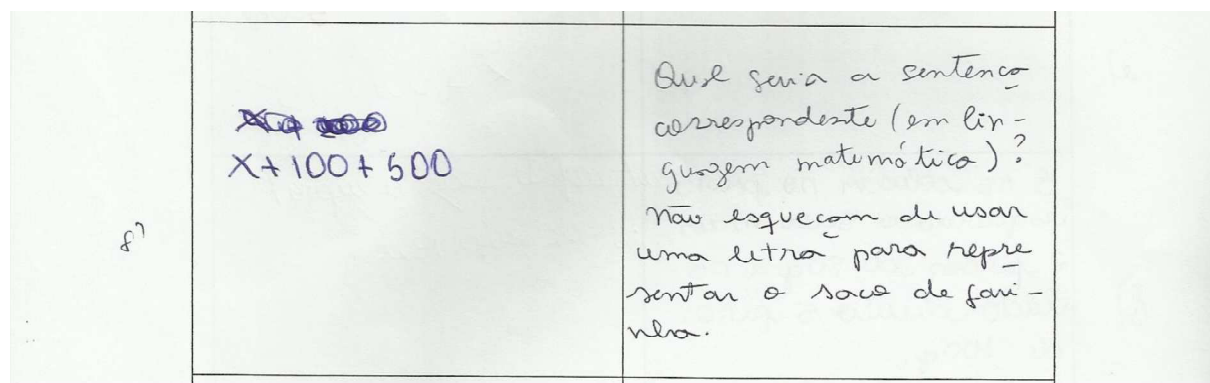 X+100+500
Qual seria a sentença
correspondente (em lin-
guagem matemática)?
Não esqueçam de usar
uma letra para repre
sentar o saco de fari-
nha.